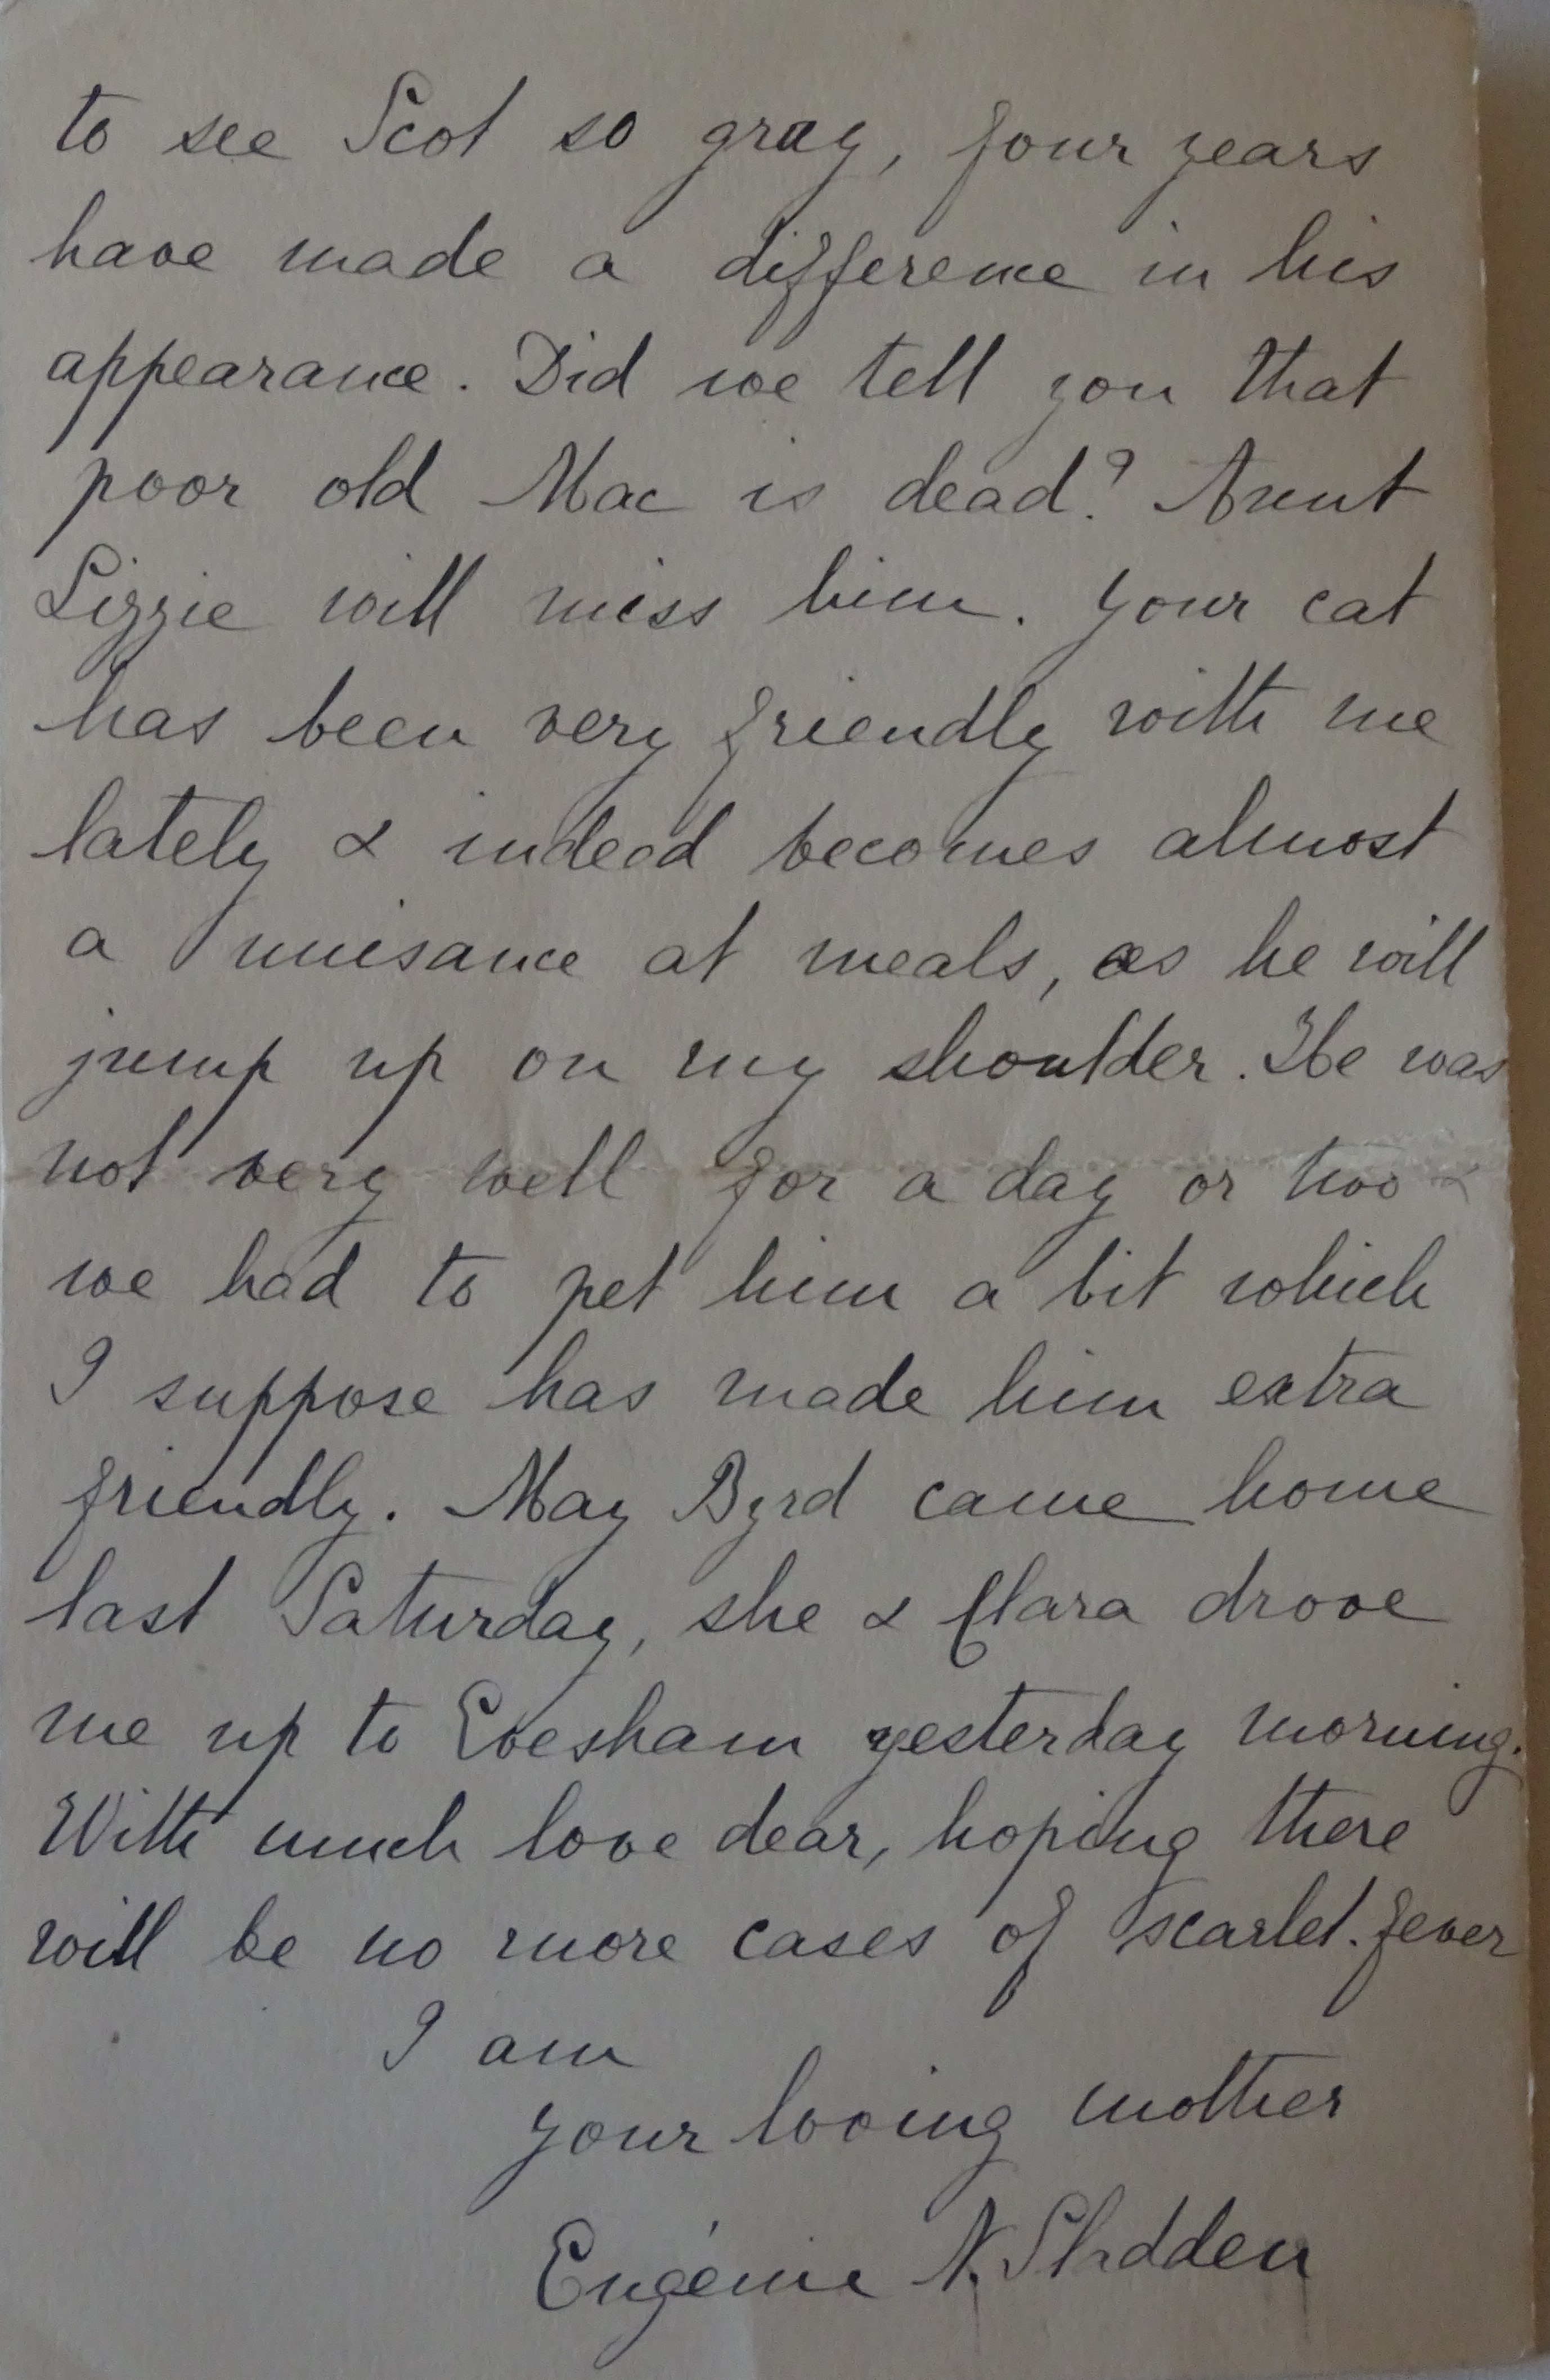 to see Scot so gray, four years
have made a difference in his
appearance. Did we tell you that
poor old Mac is dead? Aunt
Lizzie will miss him. Your cat
has been very friendly with me
lately & indeed becomes almost
a nuisance at meals, as he will
jump up on my shoulder. He was
not very well for a day or two &
we had to pet him a bit which
I suppose has made him extra
friendly. May Byrd came home
last Saturday, she & Clara drove
me up to Evesham yesterday morning.
With much love dear, hoping there
will be no more cases of scarlet-fever
I am
your loving mother
Eugénie N. Sladden